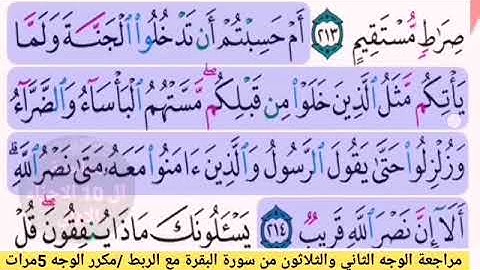 صِرَٰطٖ مُّسۡتَقِيمٍ ٢١٣ أَمۡ حَسِبۡتُمۡ أَن تَدۡخُلُواْ ٱلۡجَنَّةَ وَلَمَّا
يَأۡتِكُم مَّثَلُ ٱلَّذِينَ خَلَوۡاْ مِن قَبۡلِكُمۖ مَّسَّتۡهُمُ ٱلۡبَأۡسَآءُ وَٱلضَّرَّآءُ
وَزُلۡزِلُواْ حَتَّىٰ يَقُولَ ٱلرَّسُولُ وَٱلَّذِينَ ءَامَنُواْ مَعَهُۥ مَتَىٰ نَصۡرُ ٱللَّهِۗ
أَلَآ إِنَّ نَصۡرَ ٱللَّهِ قَرِيبٞ ٢١٤ يَسۡـَٔلُونَكَ مَاذَا يُنفِقُونَۖ قُلۡ
مراجعة الوجه الثاني والثلاثون من سورة البقرة مع الربط /مكرر الوجه 5مرات